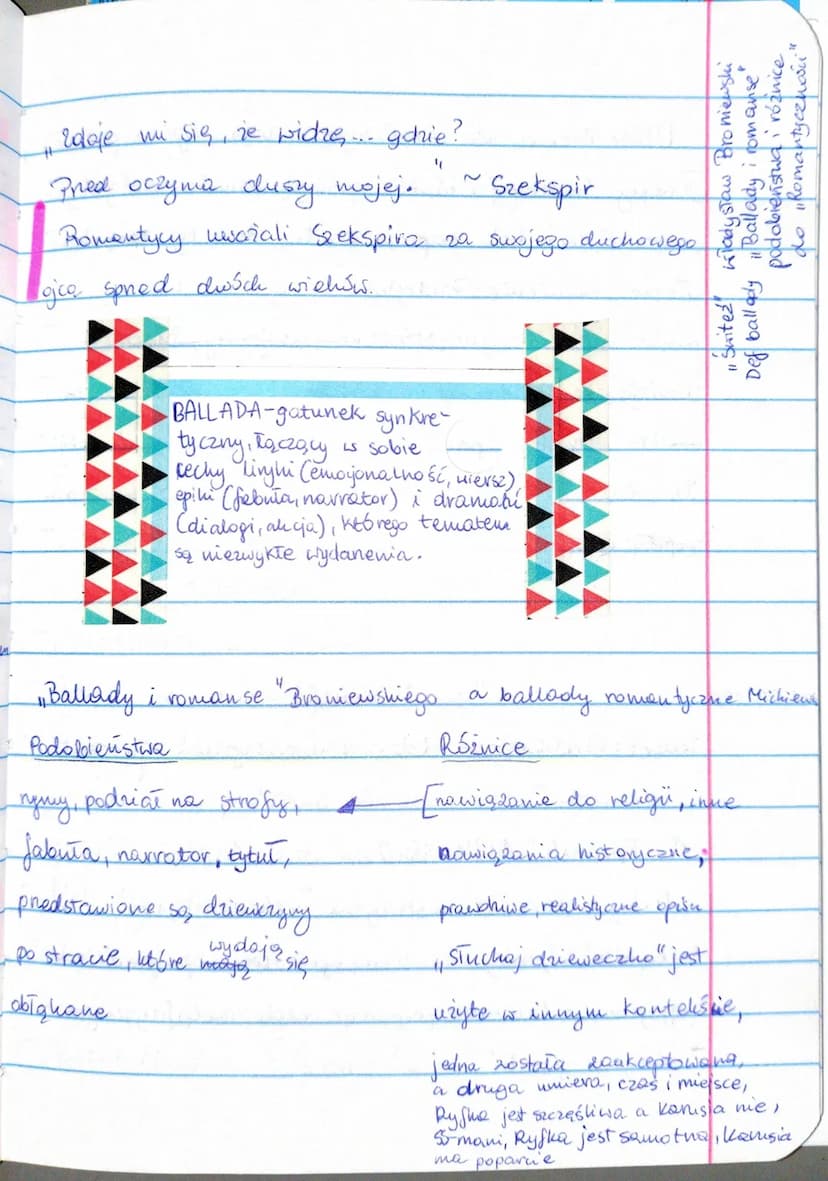 „Zdaje mi się, że widzę... gdzie?
Przed oczyma duszy mojej." ~ Szekspir
Romantycy uważali Szekspira za swojego duchowego
ojca sprzed dwóch wieków.
„Świteź" Władysław Broniewski
Def ballady „Ballady i romanse"
podobieństwa i różnice
do „Romantyczności"
BALLADA-gatunek synkre-
tyczny, łączący w sobie
cechy liryki (emocjonalność, wiersz),
epiki (fabuła, narrator) i dramatu
(dialogi, akcja), którego tematem
są niezwykłe wydarzenia.
„Ballady i romanse" Broniewskiego a ballady romantyczne Mickiew
Podobieństwa
rymy, podział na strofy,
fabuła, narrator, tytuł,
przedstawione są dziewczyny
po stracie, które mają wydają się
obłąkane
Różnice
[nawiązanie do religii, inne
nawiązania historyczne,
prawdziwe, realistyczne opisy
„Słuchaj dzieweczko" jest
użyte w innym kontekście,
jedna została zaakceptowana,
a druga umiera, czas i miejsce,
Ryfka jest szczęśliwa a Karusia nie,
Ryfka jest samotna, Karusia
ma poparcie